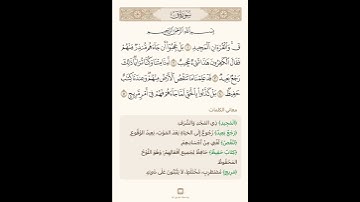 سورة ق
بِسْمِ اللَّهِ الرَّحْمَٰنِ الرَّحِيمِ
قٓ ۚ وَالْقُرْآنِ الْمَجِيدِ ۝ بَلْ عَجِبُوا أَن جَاءَهُم مُّنذِرٌ مِّنْهُمْ
فَقَالَ الْكَافِرُونَ هَٰذَا شَيْءٌ عَجِيبٌ ۝ أَإِذَا مِتْنَا وَكُنَّا تُرَابًا ۖ ذَٰلِكَ
رَجْعٌ بَعِيدٌ ۝ قَدْ عَلِمْنَا مَا تَنقُصُ الْأَرْضُ مِنْهُمْ ۖ وَعِندَنَا كِتَابٌ
حَفِيظٌ ۝ بَلْ كَذَّبُوا بِالْحَقِّ لَمَّا جَاءَهُمْ فَهُمْ فِي أَمْرٍ مَّرِيجٍ ۝
معاني الكلمات
﴿الْمَجِيدِ﴾ ذِي الْمَجْدِ وَالشَّرَفِ.
﴿رَجْعٌ بَعِيدٌ﴾ رُجُوعٌ إِلَى الْحَيَاةِ بَعْدَ الْمَوْتِ، بَعِيدُ الْوُقُوعِ.
﴿تَنقُصُ﴾ تُفْنِي مِنْ أَجْسَادِهِمْ.
﴿كِتَابٌ حَفِيظٌ﴾ حَافِظٌ لِجَمِيعِ أَفْعَالِهِمْ، وَهُوَ اللَّوْحُ
الْمَحْفُوظُ.
﴿مَرِيجٍ﴾ مُضْطَرِبٍ، مُخْتَلِطٍ، لَا يَثْبُتُونَ عَلَى شَيْءٍ.